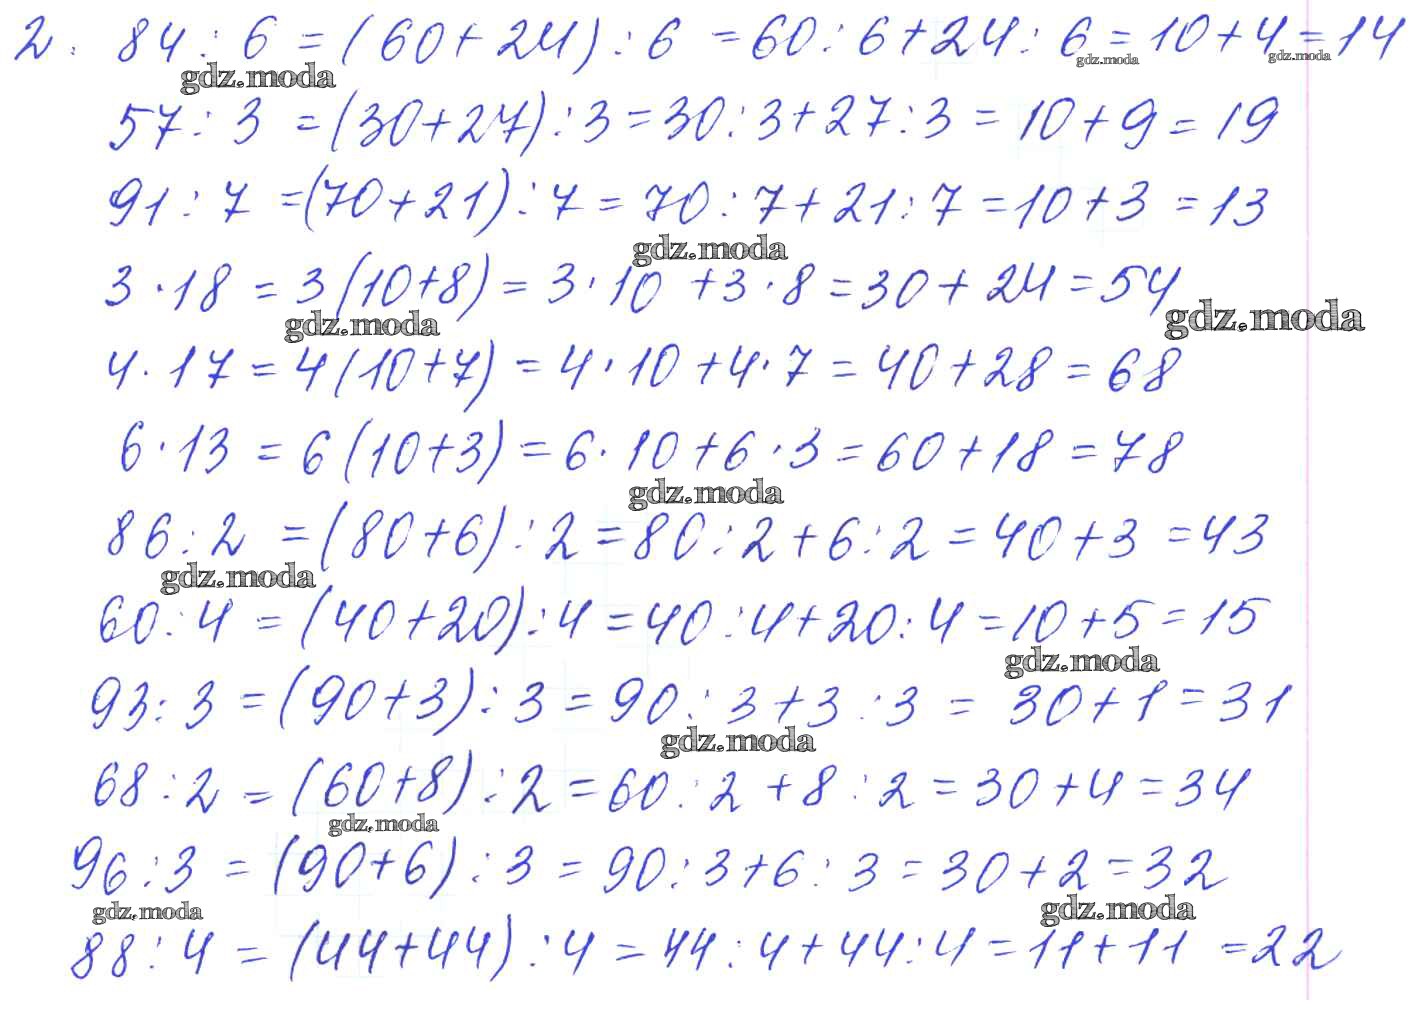 2. 84 : 6 = (60 + 24) : 6 = 60 : 6 + 24 : 6 = 10 + 4 = 14
gdz.moda gdz.moda gdz.moda
57 : 3 = (30 + 27) : 3 = 30 : 3 + 27 : 3 = 10 + 9 = 19
91 : 7 = (70 + 21) : 7 = 70 : 7 + 21 : 7 = 10 + 3 = 13
gdz.moda
3 · 18 = 3 (10 + 8) = 3 · 10 + 3 · 8 = 30 + 24 = 54
gdz.moda gdz.moda
4 · 17 = 4 (10 + 7) = 4 · 10 + 4 · 7 = 40 + 28 = 68
6 · 13 = 6 (10 + 3) = 6 · 10 + 6 · 3 = 60 + 18 = 78
gdz.moda
86 : 2 = (80 + 6) : 2 = 80 : 2 + 6 : 2 = 40 + 3 = 43
gdz.moda
60 : 4 = (40 + 20) : 4 = 40 : 4 + 20 : 4 = 10 + 5 = 15
gdz.moda
93 : 3 = (90 + 3) : 3 = 90 : 3 + 3 : 3 = 30 + 1 = 31
gdz.moda
68 : 2 = (60 + 8) : 2 = 60 : 2 + 8 : 2 = 30 + 4 = 34
gdz.moda
96 : 3 = (90 + 6) : 3 = 90 : 3 + 6 : 3 = 30 + 2 = 32
gdz.moda gdz.moda
88 : 4 = (44 + 44) : 4 = 44 : 4 + 44 : 4 = 11 + 11 = 22